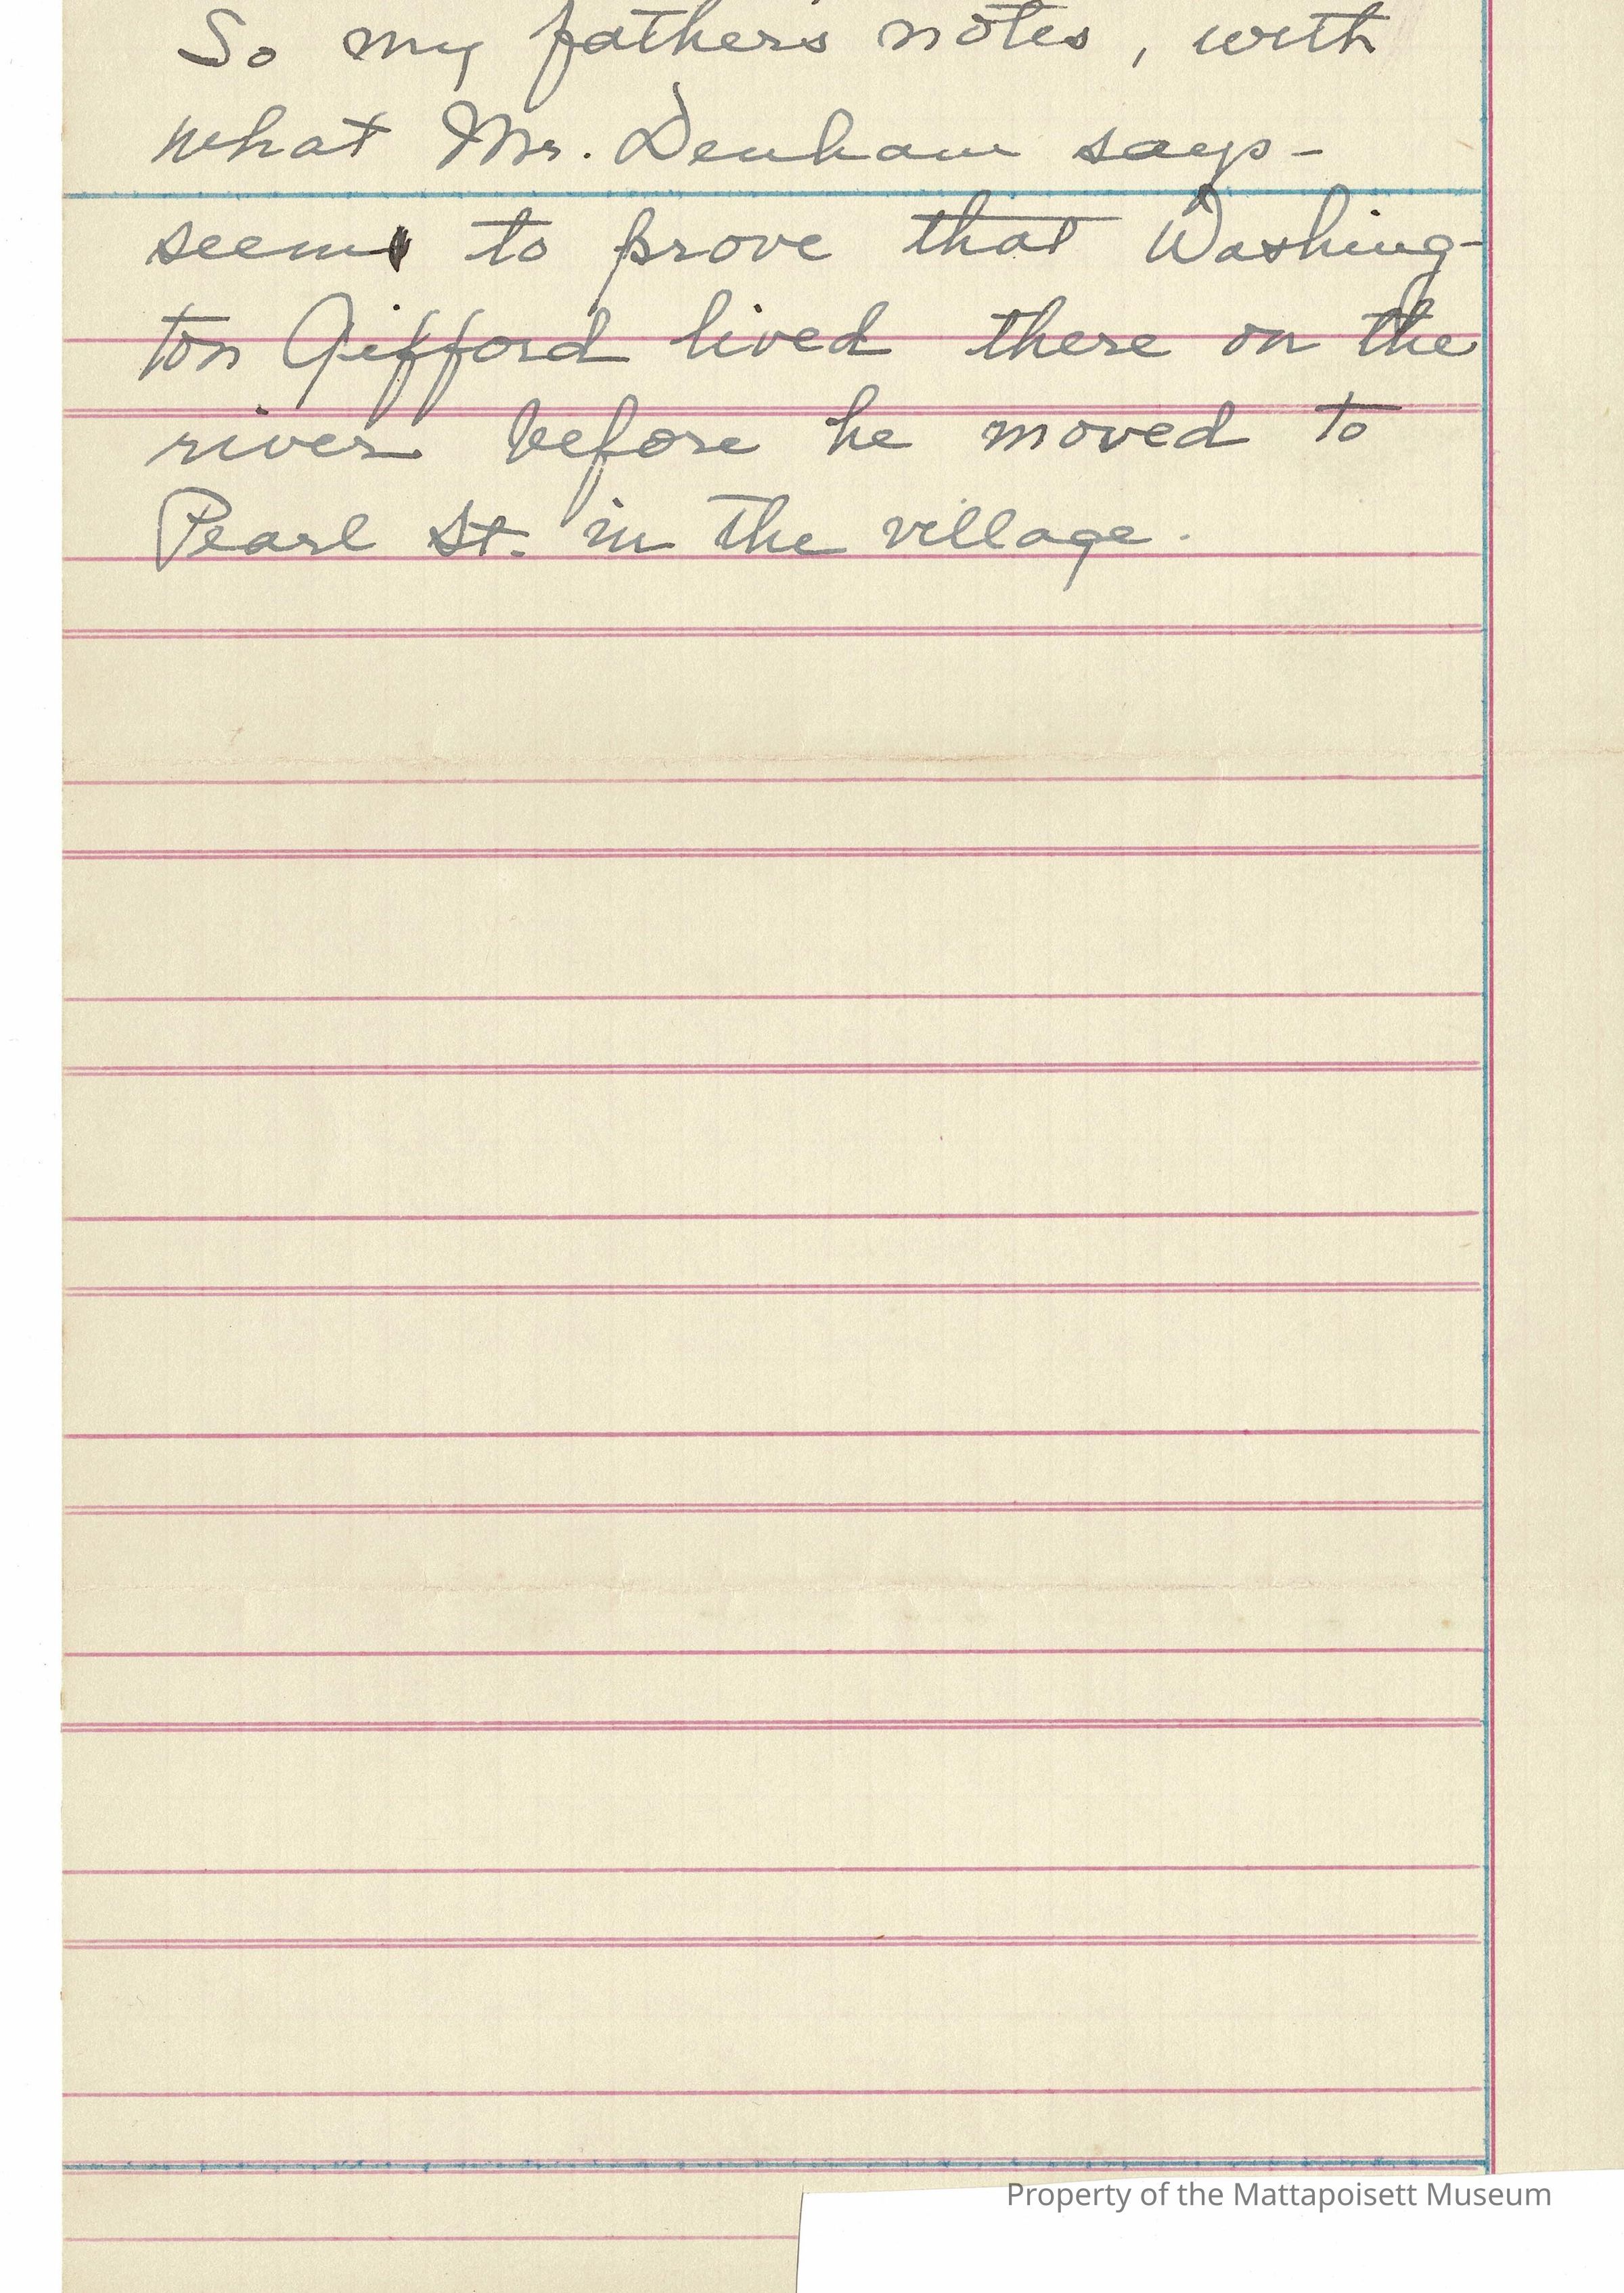 So my fathers notes, with
what Mr. Denham says-
seems to prove that Washing-
ton Gifford lived there on the
river before he moved to
Pearl St. in the village.
Property of the Mattapoisett Museum